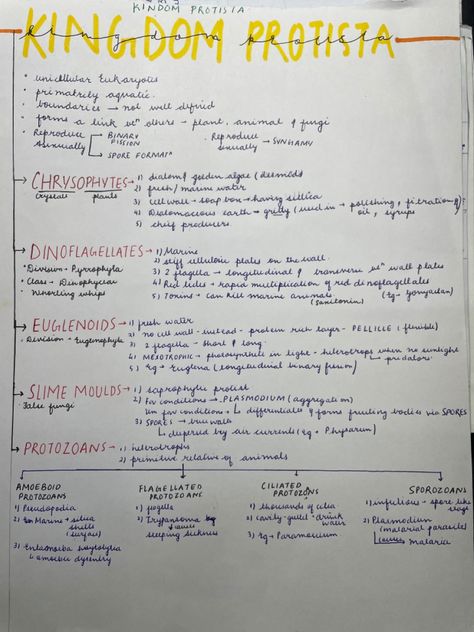 KINDOM PROTISTA
KINGDOM PROTISTA
kingdom protista
• unicellular Eukaryotes
• primatrily aquatic
• boundaries → not well defined
• forms a link btn others → plant, animal & fungi
• Reproduce asexually → BINARY FISSION
→ SPORE FORMATn
• Reproduce sexually → SYNGAMY
→ CHRYSOPHYTES → 1) diatom & golden algae (desmids)
crystal plants
2) fresh/marine water
3) cell wall → soap box → having sillica
4) Diatomaceous earth → gritty (used in → polishing, filtration of oil, syrups
5) chief producers
→ DINOFLAGELLATES → 1) Marine
• Division → Pyrrophyta
• Class → Dinophyceae
• Whorling whips
2) stiff cellulosic plates on the wall.
3) 2 flagella → longitudinal & transverse btn wall plates
4) Red tides → rapid multiplication of red dinoflagellates
5) Toxins → can kill marine animals (Eg → Gonyaulax)
(saxitonin)
→ EUGLENOIDS → 1) fresh water
• Division → Euglenophyta
2) no cell wall - instead - protein rich layer - PELLICLE (flexible)
3) 2 flagella → short & long
4) MESOTROPHIC → photosynthetic in light - heterotrops when no sunlight
↳ predators
5) Eg → Euglena (longitudinal binary fission)
→ SLIME MOULDS → 1) saprophytic protist
False fungi
2) Fav conditions → PLASMODIUM (aggregation)
Un fav condition → ↳ differentiates & forms fruiting bodies via SPORES
3) SPORES → true walls
↳ dispersed by air currents (Eg → Physarum)
→ PROTOZOANS → 1) heterotrophs
2) primitive relative of animals
AMOEBOID PROTOZOANS
1) Pseudopodia
2) Marine → silica shells (surface)
3) Entamoeba
↳ amoebic dysentry
FLAGELLATED PROTOZOANS
1) flagella
2) Trypansoma
↳ cause sleeping sickness
CILIATED PROTOZONS
1) thousands of cilia
2) cavity - gullet → drink water
3) Eg → Paramoecium
SPOROZOANS
1) infectious → spore like stage
2) Plasmodium
(malarial parasite)
↳ causes malaria